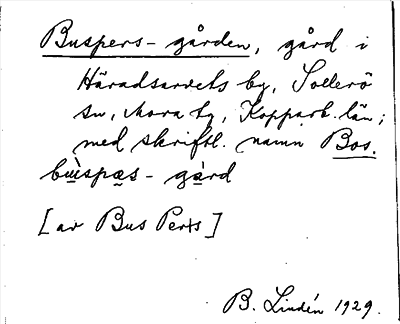 Buspers-gården, gård i
Häradsarvets by, Sollerö
sn, Mora tg, Kopparb. län;
med skriftl. namn Bos.
bùspæs-gàrd
[av Bus Pers]
B. Lindén 1929.